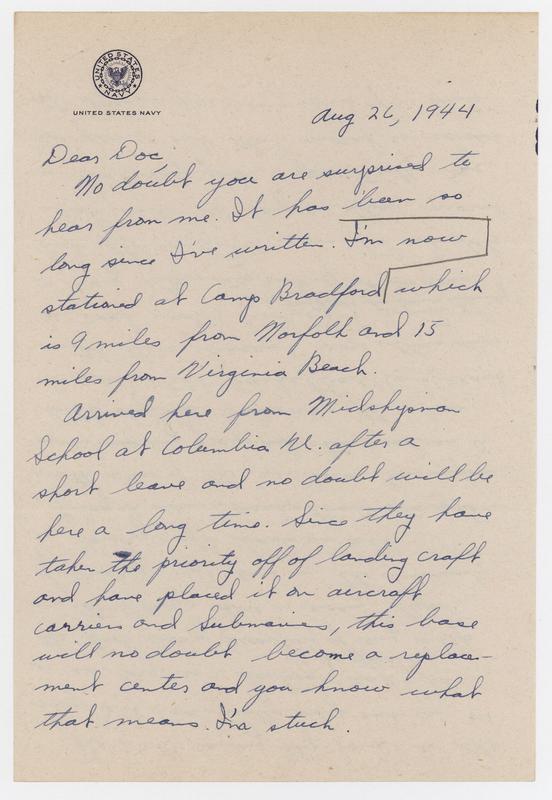 UNITED STATES NAVY
UNITED STATES NAVY
Aug 26, 1944
Dear Doc,
No doubt you are surprised to
hear from me. It has been so
long since I've written. I'm now
stationed at Camp Bradford which
is 9 miles from Norfolk and 15
miles from Virginia Beach.
Arrived here from Midshipman
School at Columbia U. after a
short leave and no doubt will be
here a long time. Since they have
taken the priority off of landing craft
and have placed it on aircraft
carriers and submarines, this base
will no doubt become a replace-
ment center and you know what
that means. I'm stuck.